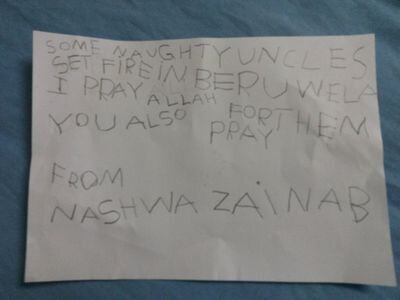 SOME NAUGHTY UNCLES
SET FIRE IN BERUWELA
I PRAY ALLAH FOR THEM
YOU ALSO PRAY
FROM
NASHWA ZAINAB